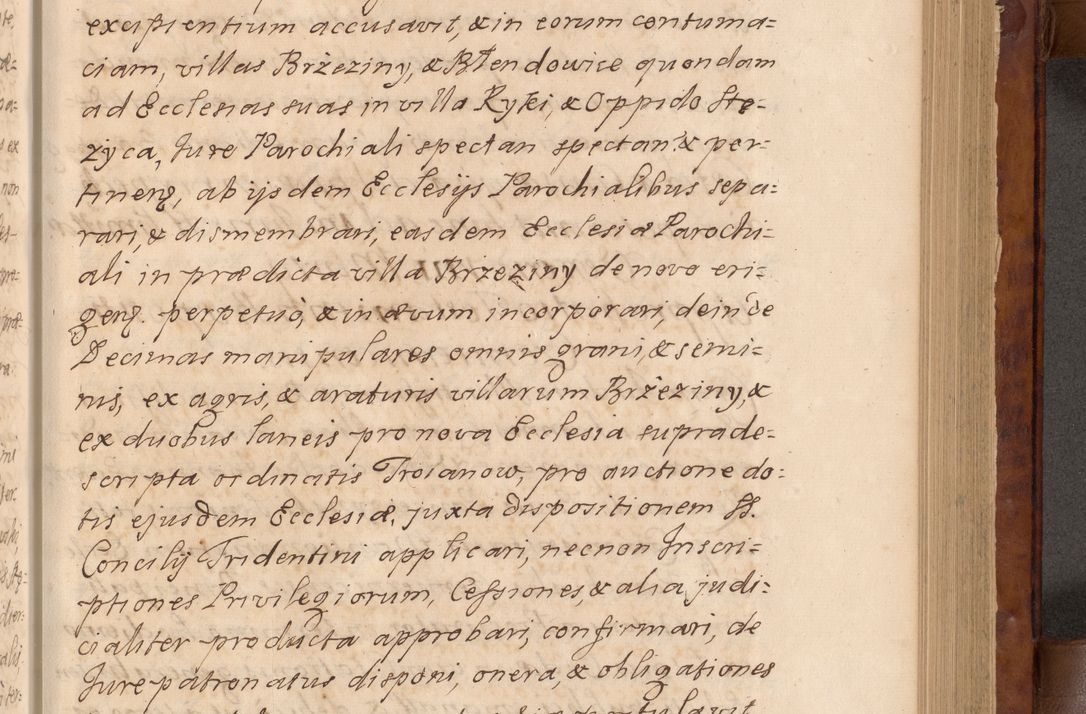 excipientium accusavit, & in eorum contuma=
ciam, villas Brżeziny, & Błendowice quondam
ad Ecclesias suas in villa Ryki, & Oppido Stę=
życa, Jure Parochiali spectan spectan. & per=
tinen, ab ijsdem Ecclesijs Parochialibus sepa=
rari, & dismembrari, easdem Ecclesiæ Parochi=
ali in prædicta villa Brzeziny de novo eri=
gen. perpetuò, & in ævum incorporari, deinde
Decimas manipulares omnis grani, & semi=
nis, ex agris, & araturis villarum Brżeziny, &
ex duobus laneis pro nova Ecclesia suprade=
scripta ordinatis Troianow, pro auctione do=
tis ejusdem Ecclesiæ, juxta dispositionem SS.
Concilij Tridentini applicari, necnon Inscri=
ptiones Privilegiorum, Cessiones, & alia judi=
cialiter producta approbari, confirmari, de
Jure patronatus disponi, onera, & obligationes